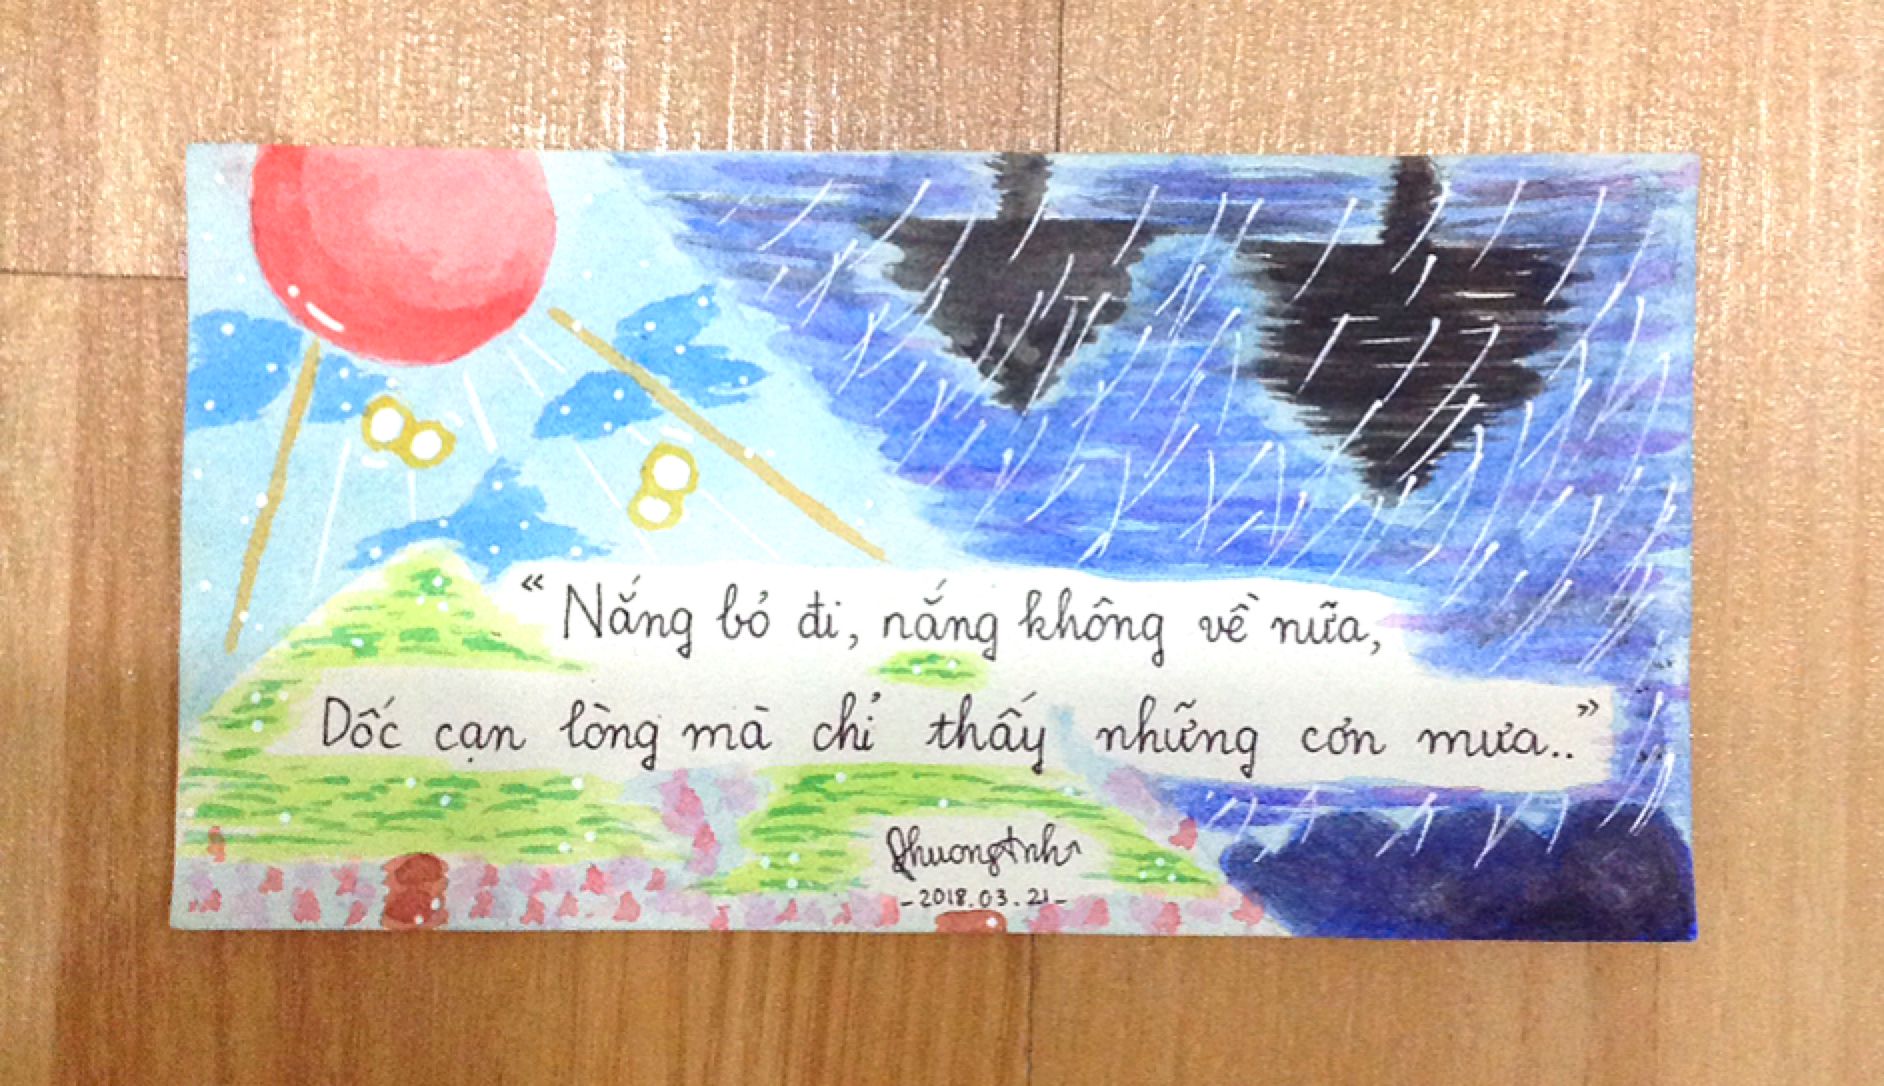 “ Nắng bỏ đi, nắng không về nữa,
Dốc cạn lòng mà chỉ thấy những cơn mưa.. ”
PhuongAnh
- 2018.03.21 -